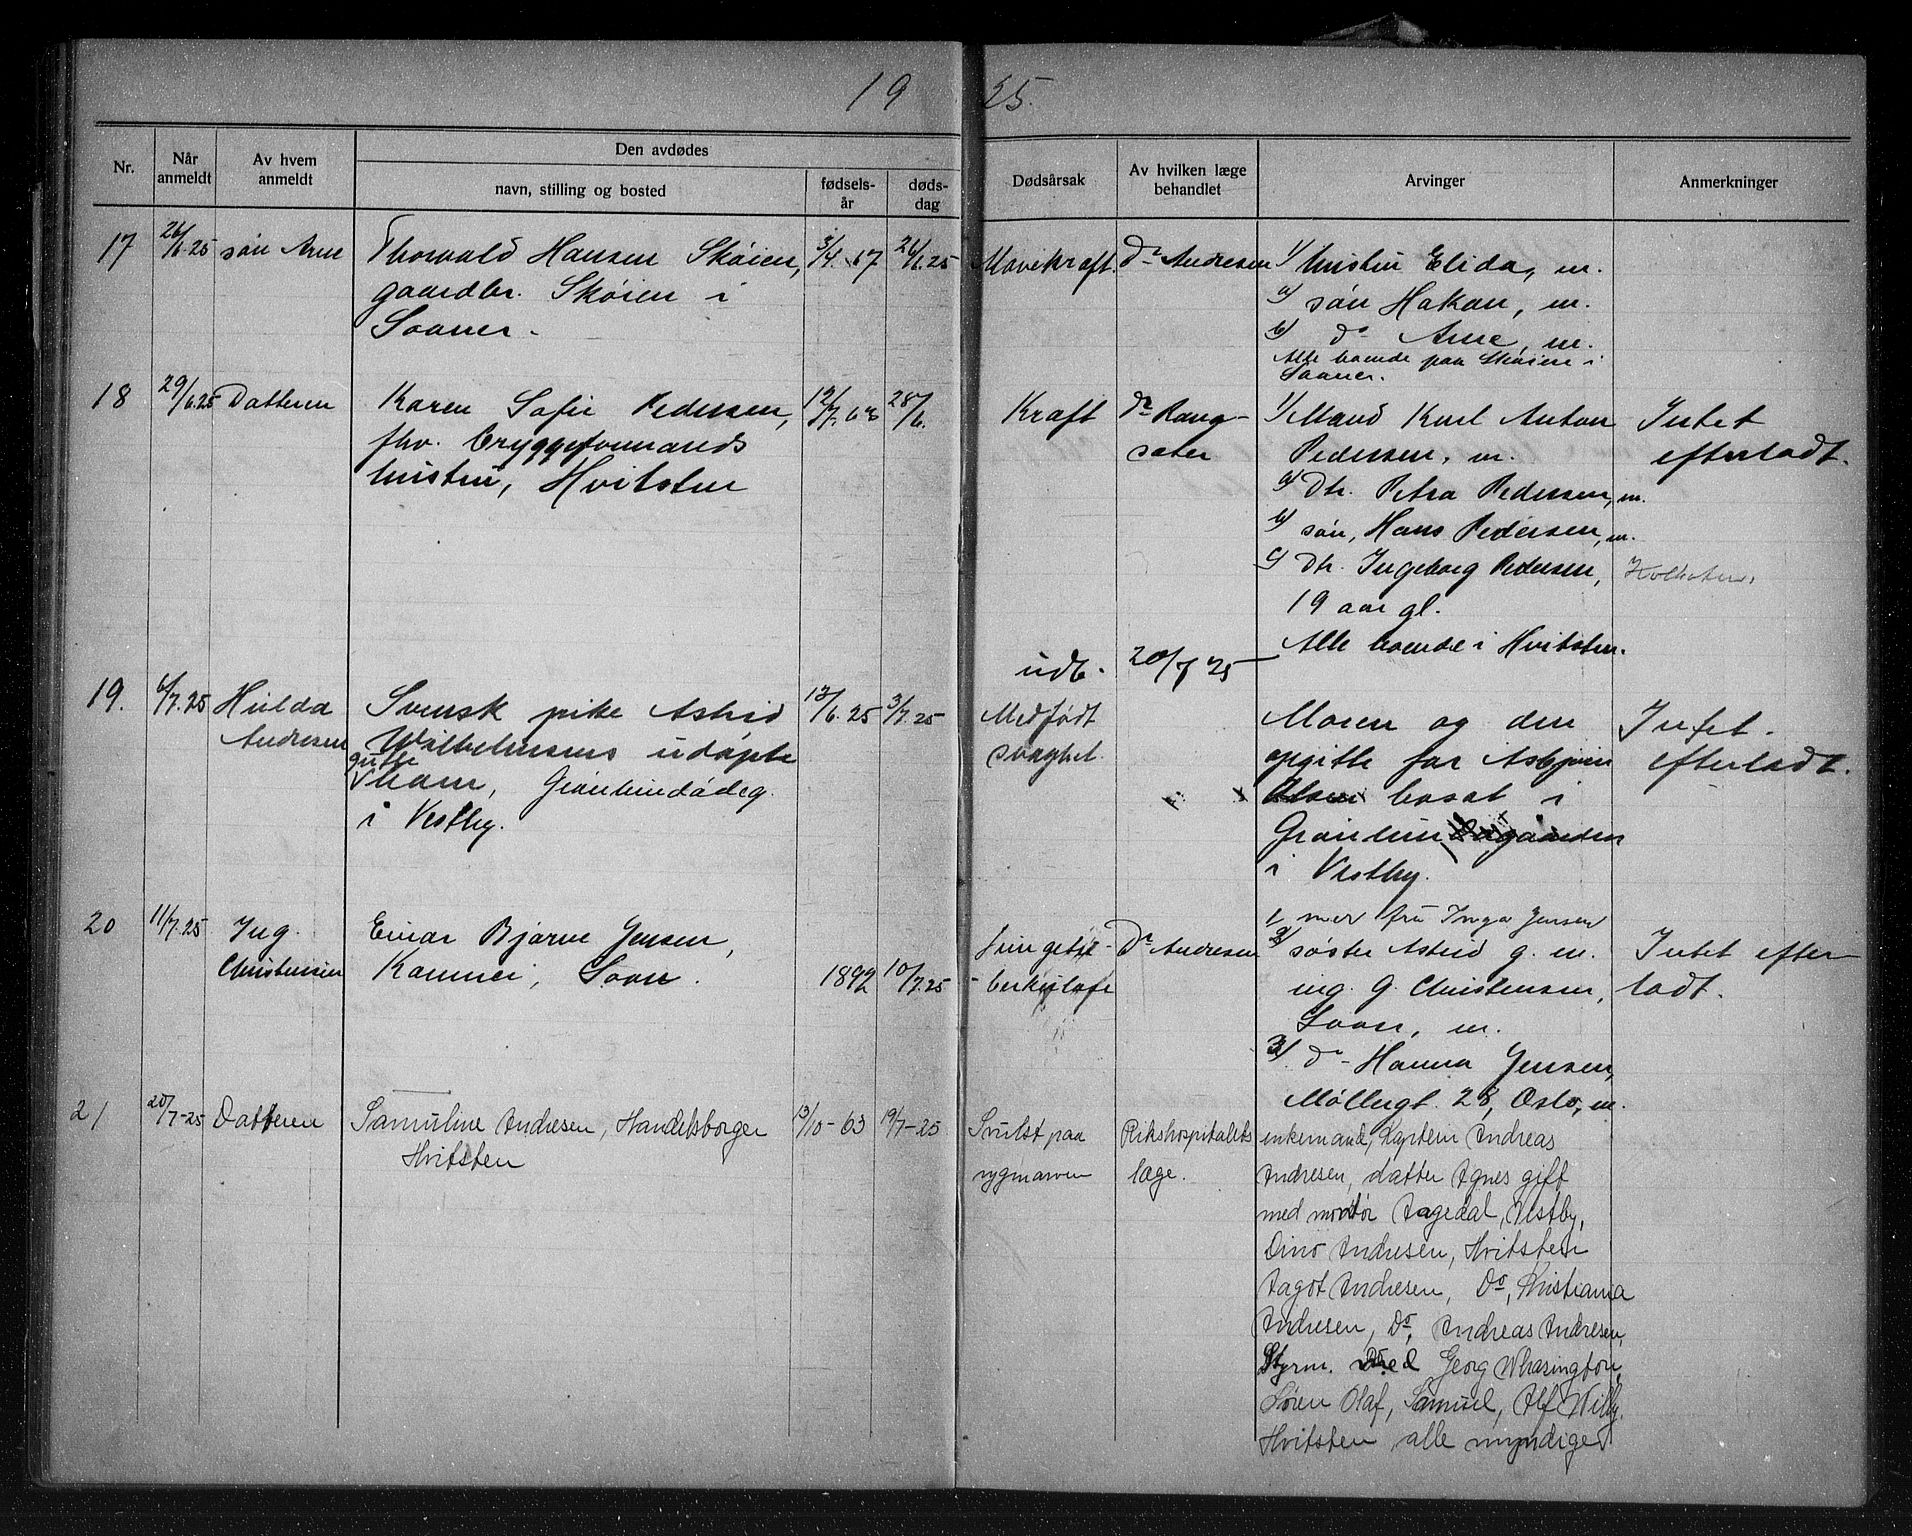 19 25.
Nr.
Når anmeldt
Av hvem anmeldt
Den avdødes
navn, stilling og bosted
fødsels-år
døds-dag
Dødsårsak
Av hvilken læge behandlet
Arvinger
Anmerkninger
17 26/6.25 søn Arne
Thorvald Hansen Skøien,
gaardbr. Skøien i
Saaner.
3/4. 67 26/6.25
Mavekræft. Dr Andresen
1/ hustru Elida, m.
a/ søn Hakon, m.
b/ do Arne, m.
Alle boende paa Skøien i
Saaner.
18 29/6.25 Datteren
Karen Sofie Pedersen,
fhv. bryggeformands
hustru, Hvitsten
12/7. 63 28/6.
Kræft
Dr Rang-
sæter
1/ Mand Karl Anton
Pedersen, m.
a/ Dtr. Petra Pedersen, m.
b/ søn, Hans Pedersen, m.
c/ Dtr. Ingeborg Pedersen,
19 aar gl.
Alle boende i Hvitsten.
Intet
efterladt.
udb. 20/7 25
19. 6/7.25 Hulda
Andresen
Svensk pike Astrid
Wilhelmsens udøpte
gutte
barn, Grønlund
i Vestby.
13/6.25 3/7.25
Medfødt
svaghet
Moren og den
opgitte far Asbjørn
Olsen bosat i
Grønlund
i Vestby.
Intet
efterladt.
20 11/7.25 Ing.
Christensen
Einar Bjarne Jensen,
Kanner, Soon.
1892 10/7.25
Lungetu-
berkulose
Dr Andresen
1/ mor fru Inga Jensen
2/ søster Astrid g. m.
ing. G. Christensen,
Soon, m.
3/ do Hanna Jensen,
Møllergt. 28, Oslo, m.
Intet efter
ladt.
21 20/7-25 Datteren
Samuline Andresen, Handelsborger
Hvitsten
13/10-63 19/7-25
Svulst paa
rygmarven
Rikshospitalets
læge.
enkemand, Kaptein Andreas
Andresen, datter Agnes gift
med montør Aagedal, Vestby,
Dino Andresen, Hvitsten
Aagot Andresen, Do, Kristiania
Andresen, Do, Andreas Andresen,
Styrm. Georg Whasington,
Søren Olaf, Samuel, Alf Willy.
Hvitsten, alle myndige